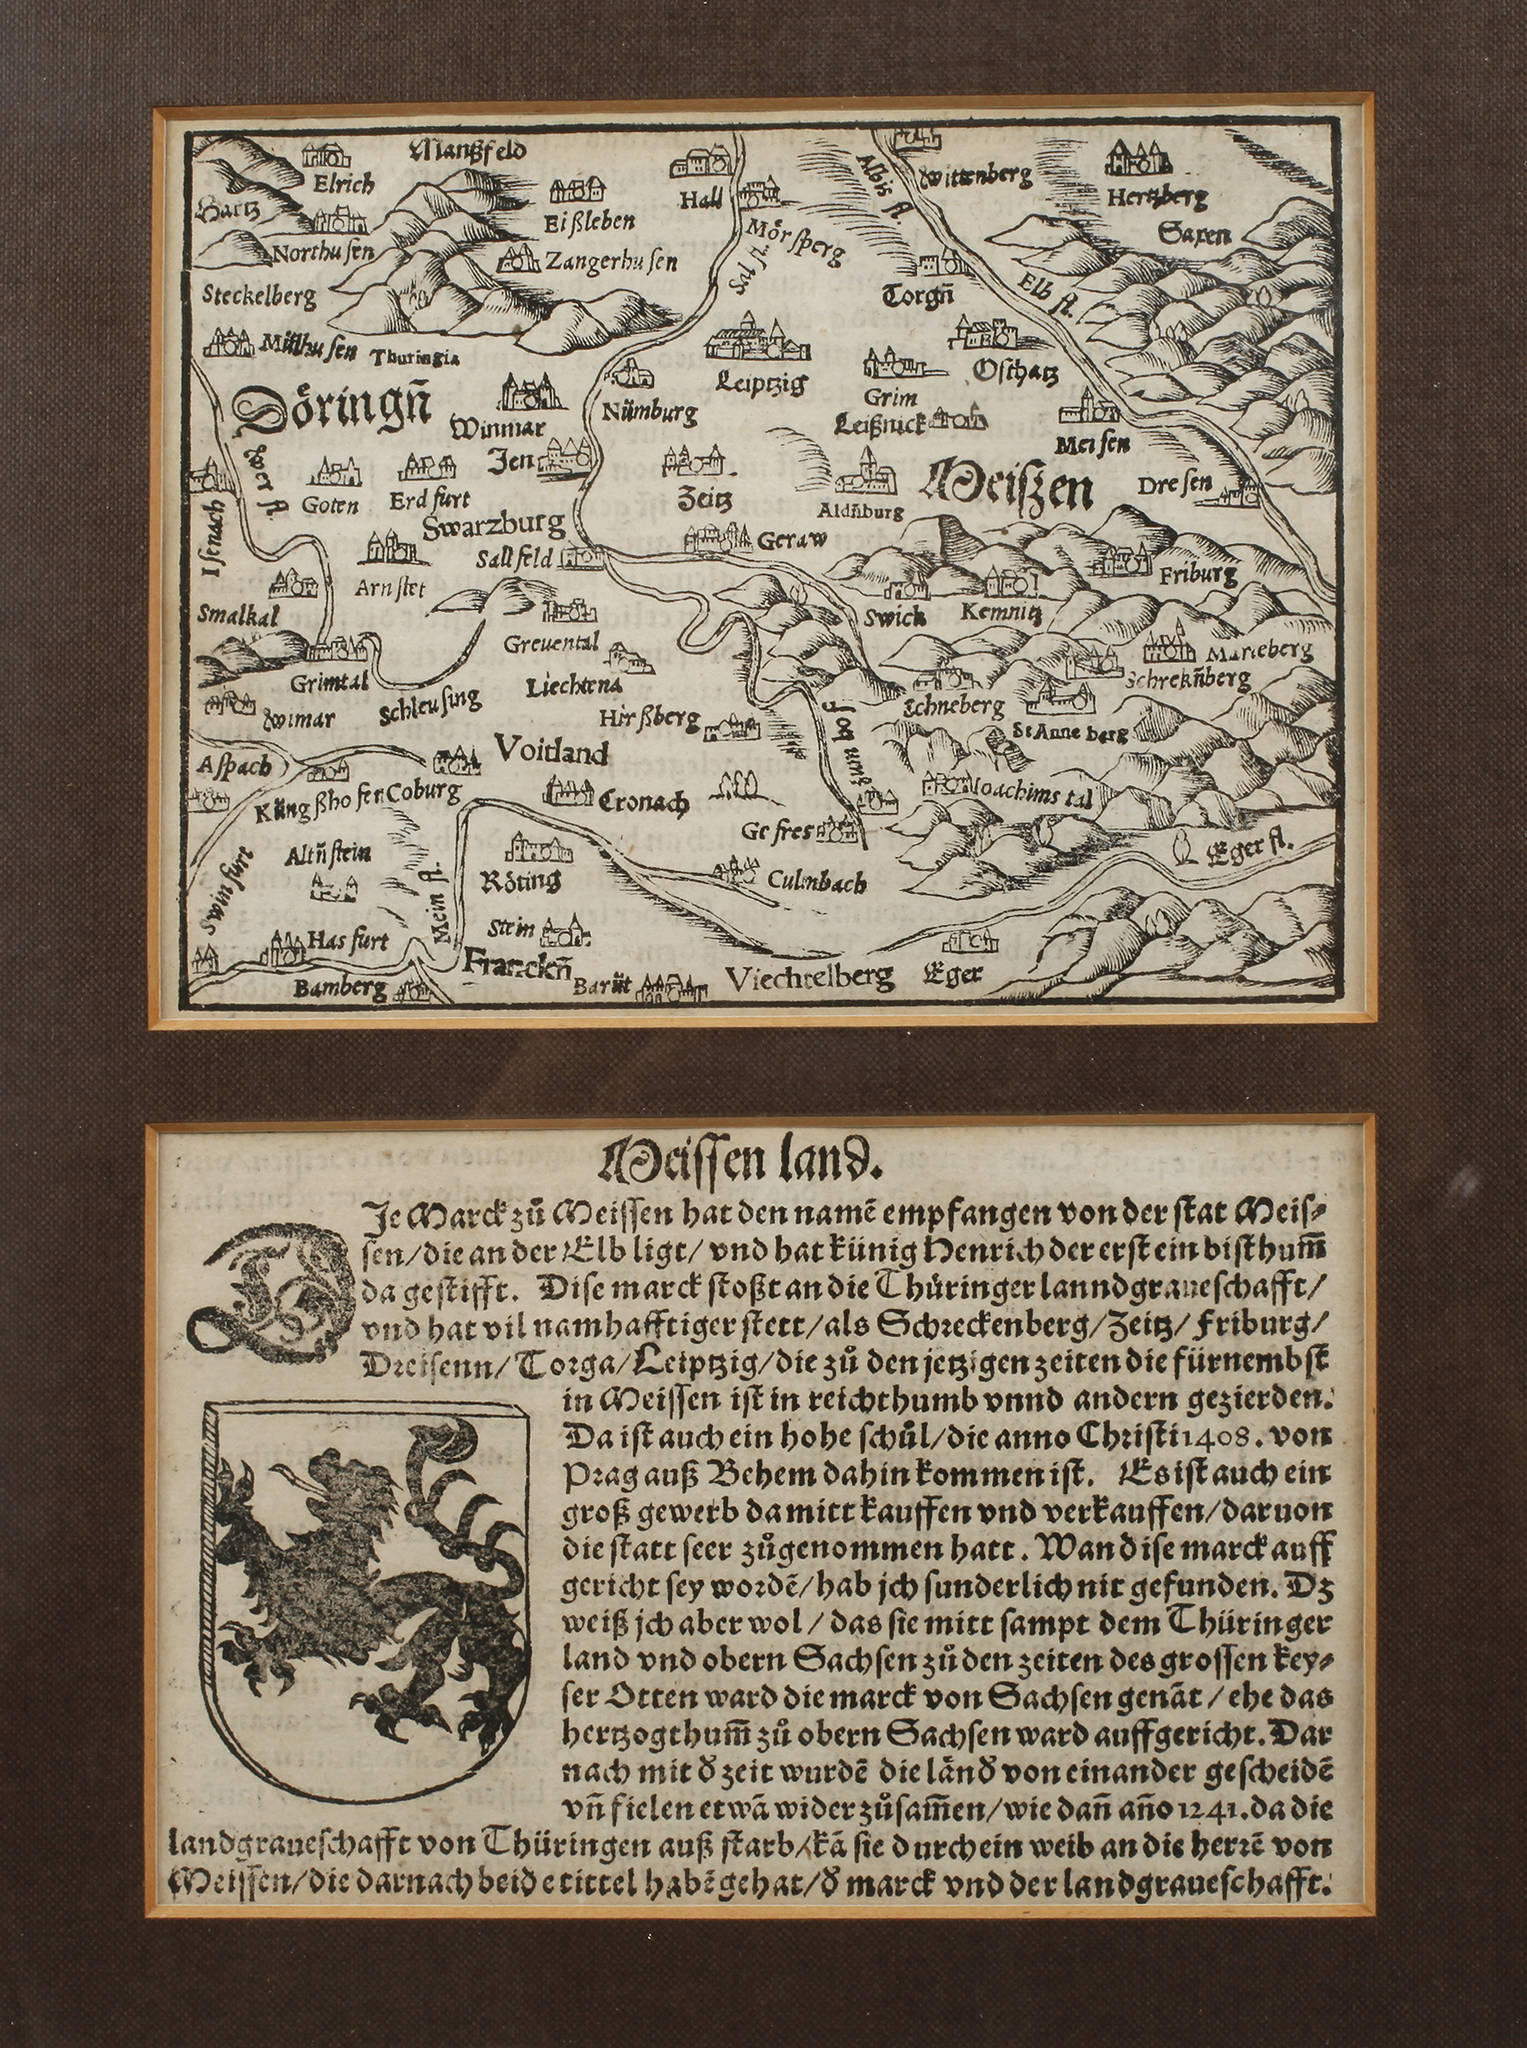 Manßfeld
Elrich
Hartz
Northusen
Eißleben
Zangerhusen
Hall
Mörsperg
Sal fl.
Albis fl
Wittenberg
Hertzberg
Saxen
Steckelberg
Torgñ
Elb fl.
Müllhusen
Thuringia
Döringñ
Winmar
Nümburg
Leiptzig
Grim
Oschatz
Leißnick
Meisen
Jen
Wer fl.
Goten
Erdfurt
Zeitz
Aldñburg
Meiszen
Dresen
Isenach
Swarzburg
Sallfeld
Geraw
Arnstet
Friburg
Smalkal
Greuental
Swick
Kemnitz
Marieberg
Grimtal
Liechtena
Schrekñberg
Wimar
Schleusing
Hirßberg
Schneberg
St Anne berg
Voitland
Aspach
Küngßhofen
Coburg
Cronach
Joachims tal
Gefres
Altñstein
Eger fl.
Swinfurt
Röting
Culmbach
Mein fl.
Stein
Hasfurt
Franckñ
Bamberg
Barüt
Viechtelberg
Eger
Meissen land.
DJe Marck zů Meissen hat den namẽ empfangen von der stat Meis⸗
sen/die an der Elb ligt/ vnd hat künig Henrich der erst ein bisthum̃
da gestifft. Dise marck stoßt an die Thüringer lanndgraueschafft/
vnd hat vil namhafftiger stett/als Schreckenberg/Zeitz/Friburg/
Dreisenn/Torga/Leiptzig/die zů den jetzigen zeiten die fürnembst
in Meissen ist in reichthumb vnnd andern gezierden.
Da ist auch ein hohe schůl/die anno Christi 1408. von
Prag auß Behem dahin kommen ist. Es ist auch ein
groß gewerb da mitt kauffen vnd verkauffen/daruon
die statt seer zůgenommen hatt. Wan dise marck auff
gericht sey wordẽ/hab jch sunderlich nit gefunden. Dz
weiß jch aber wol/das sie mitt sampt dem Thüringer
land vnd obern Sachsen zů den zeiten des grossen key⸗
ser Otten ward die marck von Sachsen genãt/ehe das
hertzogthum̃ zů obern Sachsen ward auffgericht. Dar
nach mit ď zeit wurdẽ die länď von einander gescheidẽ
vñ fielen etwã wider zůsam̃en/wie dañ año 1241. da die
landgraueschafft von Thüringen auß starb/kã sie durch ein weib an die herrẽ von
Meissen/die darnach beide tittel habẽ gehat/ď marck vnd der landgraueschafft.